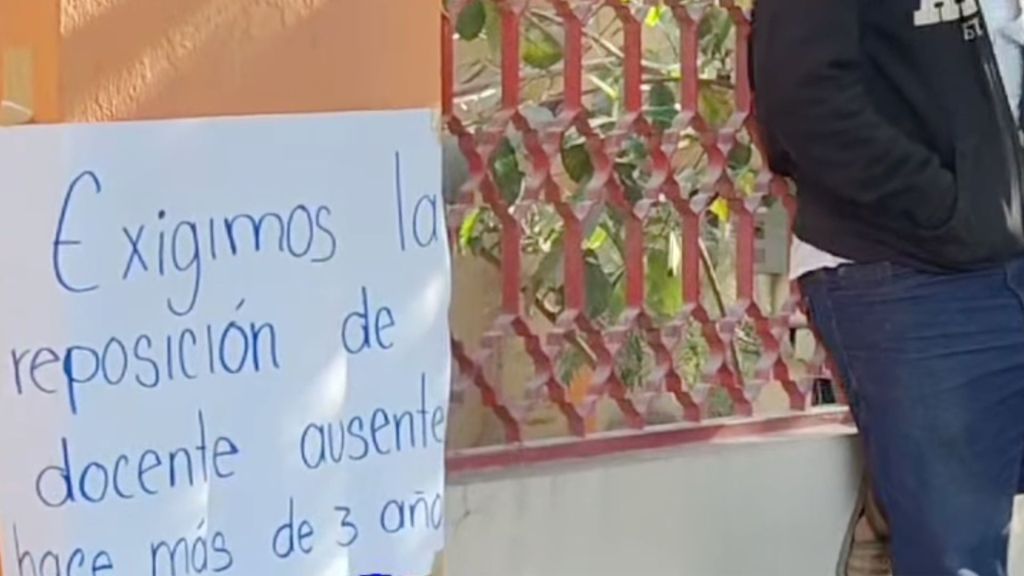 Exigimos la
reposición de
docente ausente
hace más de 3 año